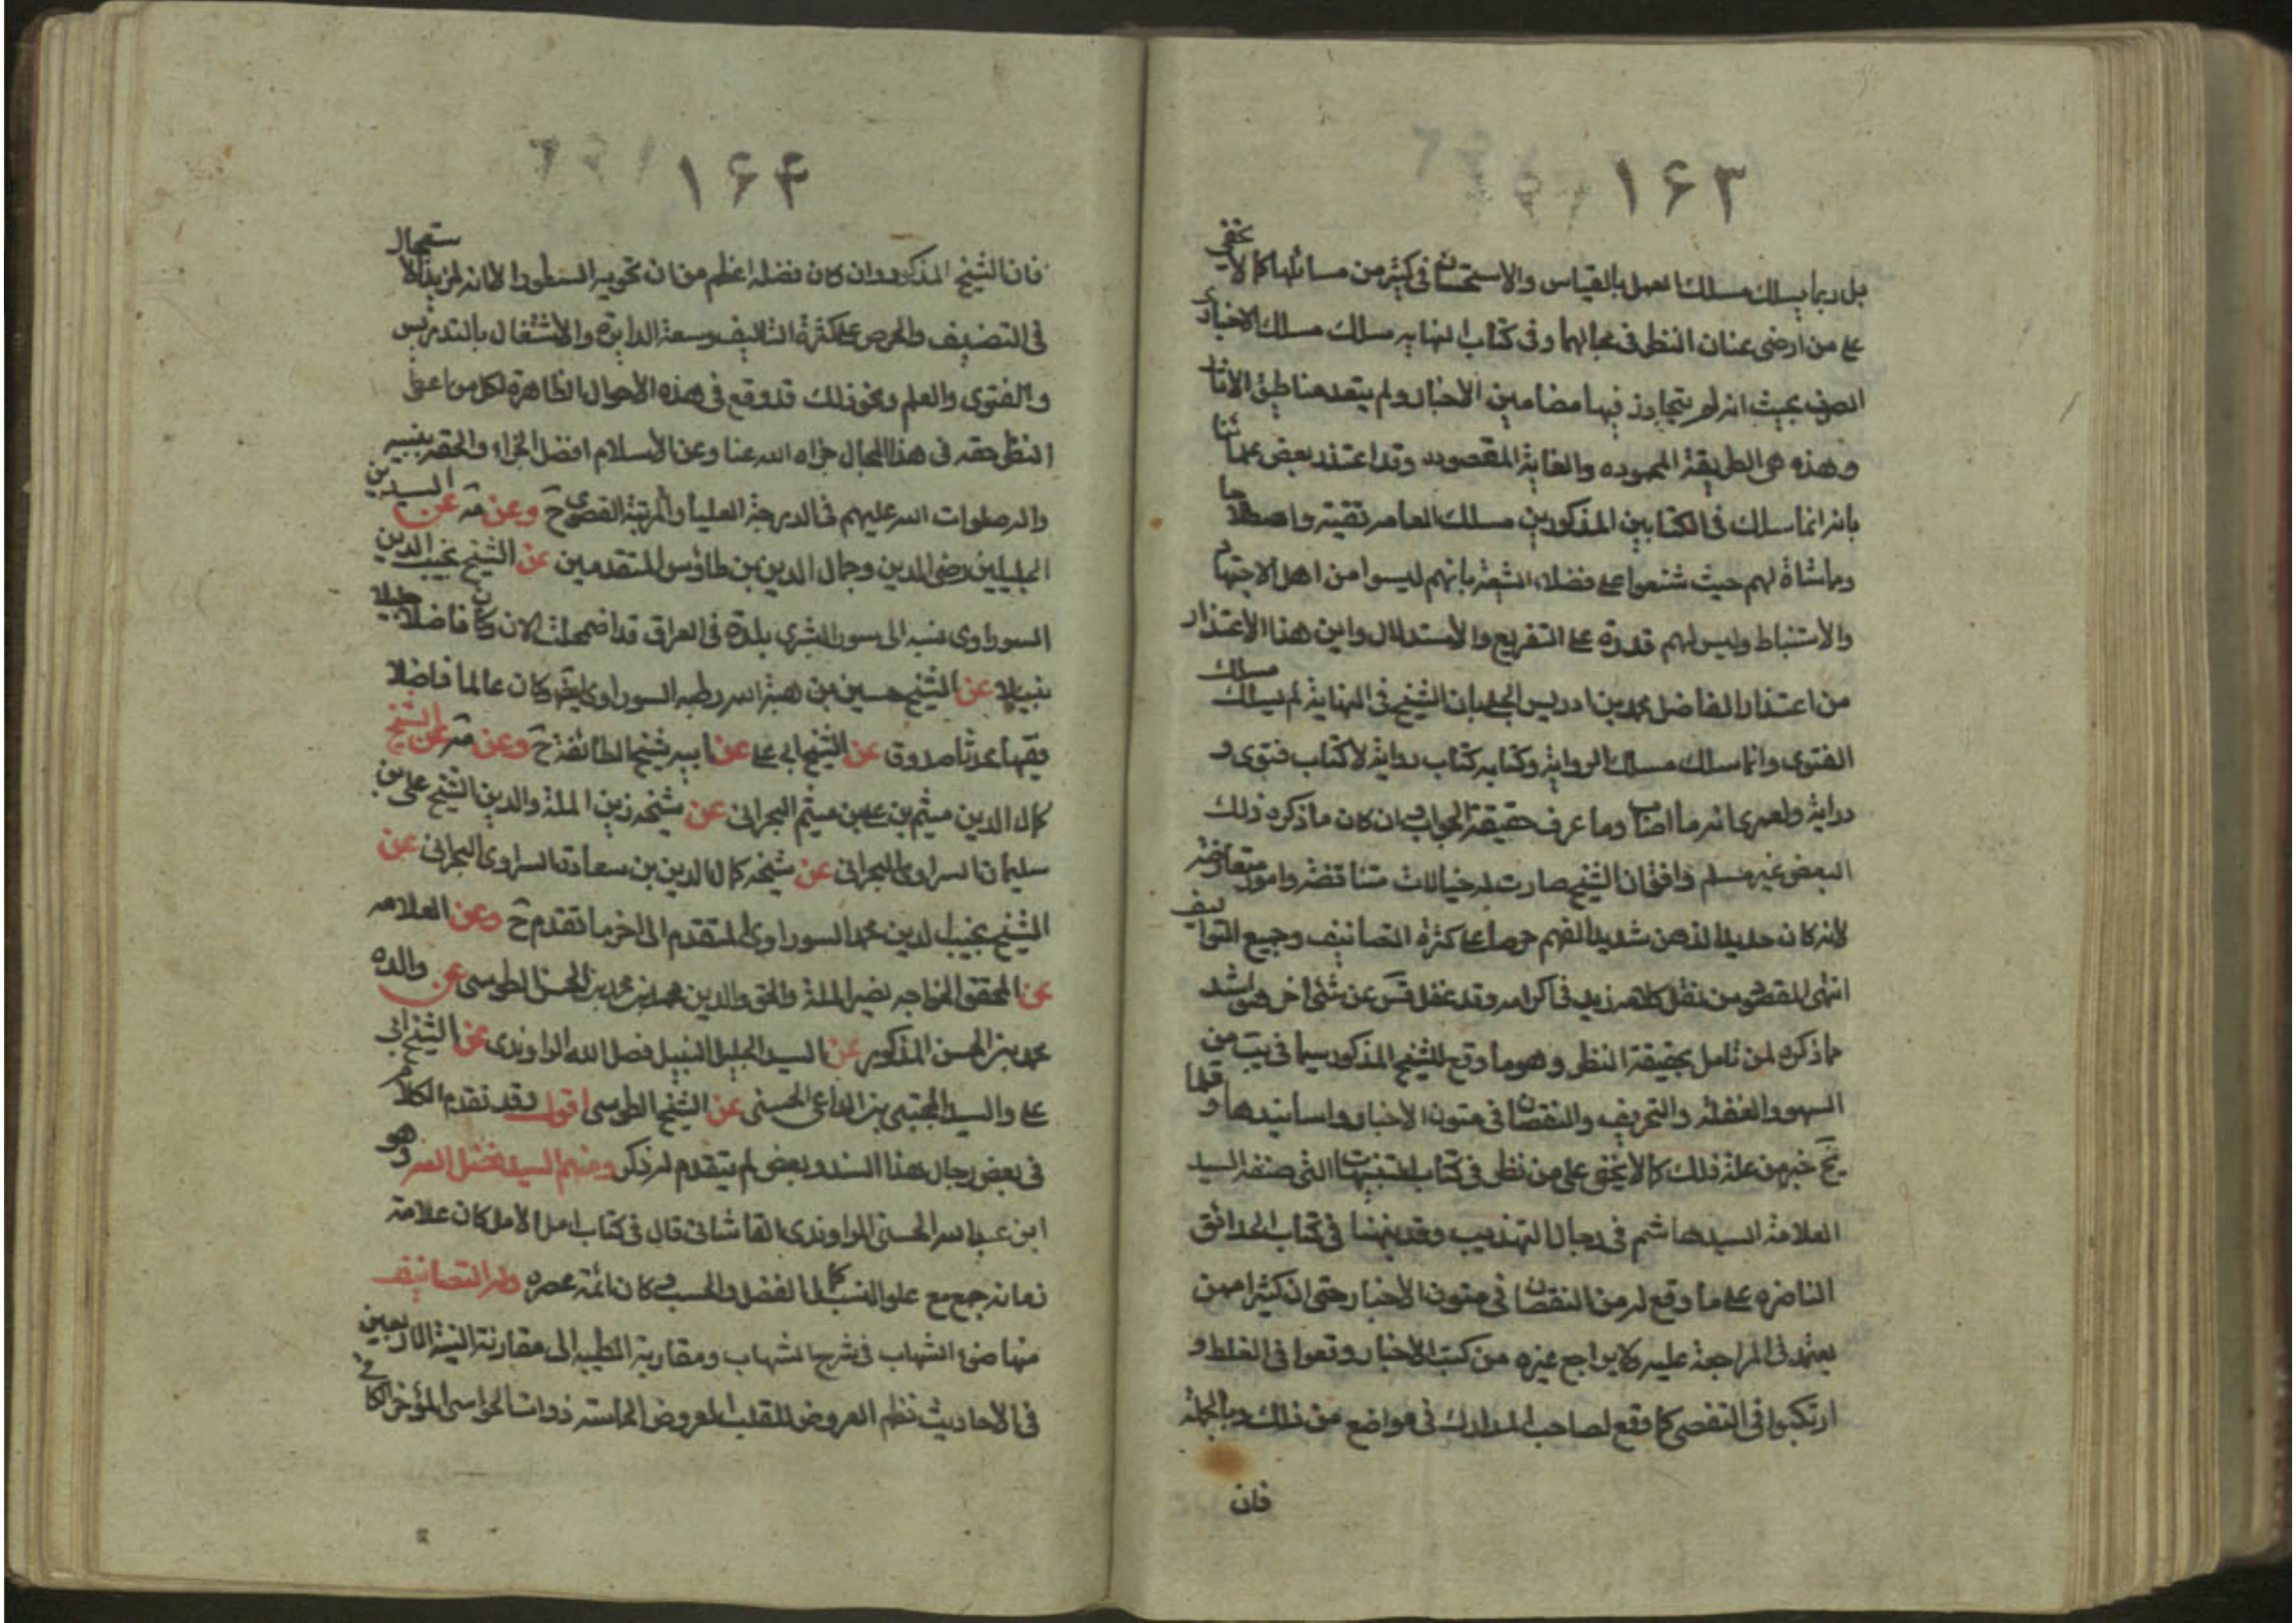 ١۶٣
بل ربما يسلك مسلك العمل بالقياس والاستحسان في كثير من مسائلها كما لا يخفى
على من ارضى عنان النظر في مجالهما وفي كتاب النهايه سلك مسلك الاخباري
الصرف بحيث انه لم يتجاوز فيها مضامين الاخبار ولم يتعد مناطيق الاثار
وهذه هي الطريقة المحموده والغاية المقصوده وقد اعتذر بعض علمائنا
بانه انما سلك في الكتابين المذكورين مسلك العامه تقيته واصطلاحا
ومماشاة لهم حيث شنعوا على فضلاء الشيعة بانهم ليسوا من اهل الاجتهاد
والاستنباط وليس لهم قدرة على التفريع والاستدلال واين هذا الاعتذار
من اعتذار الفاضل محمد بن ادريس الحلي بان الشيخ في النهاية لم يسلك مسلك
الفتوى وانما سلك مسلك الرواية وكتابه كتاب رواية لا كتاب فتوى و
دراية ولعمري انه ما اصاب وما عرف حقيقة الجواب وان كان ما ذكره ذلك
البعض غير مسلم وافتى ان الشيخ صارت له خيالات متناقضة وامور متعارضه
لانه كان حديد الذهن شديد الفهم حرصا على كثرة التصانيف وجميع التواليف
انتهى المقصود من نقل كلامه زيد في اكرامه وقد غفل قس عن شئ اخر هو اشد
مما ذكره لمن تامل بحقيقة النظر وهو ما وقع للشيخ المذكور سيما في يب من
السهو والغفلة والتحريف والنقصان في متون الاخبار واسانيدها وقلما
يخ خبر من علة ذلك كما لا يخفى على من نظر في كتاب التنبيهات التي صنفه السيد
العلامة السيد هاشم في رجال التهذيب وقد نبهنا في كتاب الحدائق
الناضره على ما وقع له من النقصان في متون الاخبار حتى ان كثيرا ممن
يعتمد في المراجعة عليه ولا يراجع غيره من كتب الاخبار وقعوا في الغلط و
ارتكبوا في التفصى كما وقع لصاحب المدارك في مواضع من ذلك وبالجملة
فان
١۶۴
فان الشيخ المذكور وان كان فضله اعظم من ان تحويه السطور الا انه لمزيد الاستعجال
في التصنيف والحرص على كثرة التاليف وسعة الدايرة والاشتغال بالتدريس
والفتوى والعلم ونحو ذلك قد وقع في هذه الاحوال الظاهرة لكل من اعطى
النظر حقه في هذا المجال جزاه الله عنا وعن الاسلام افضل الجزاء والحقه بنبيه
واله صلوات الله عليهم في الدرجة العليا والمرتبة القصوى ح وعن مه عن السيدين
الجليلين رضي الدين وجمال الدين بن طاوس المتقدمين عن الشيخ نجيب الدين
السوراوى نسبه الى سورا بشرى بلدة في العراق قد اضمحلت الان وكان فاضلا جليلا
نبيلا عن الشيخ حسين بن هبة الله رطبه السوراوى ايضا وكان عالما فاضلا
فقيها محدثا صدوق عن الشيخ ابي على عن ابيه شيخ الطائفة ح وعن مه عن الشيخ
كمال الدين ميثم بن على بن ميثم البحراني عن شيخه زين الملة والدين الشيخ على بن
سليمان السراوى البحراني عن شيخه كمال الدين بن سعادة السراوى البحراني عن
الشيخ نجيب الدين محمد السوراوى المتقدم الى اخر ما تقدم ح وعن العلامه
عن المحقق الخواجه نصير الملة والحق والدين محمد بن محمد بن الحسن الطوسى عن والده
محمد بن الحسن المذكور عن السيد الجليل النبيل فضل الله الراوندى عن الشيخ ابي
على والسيد المجتبى بن الداعى الحسنى عن الشيخ الطوسى اقول وقد تقدم الكلام
في بعض رجال هذا السند وبعض لم يتقدم له ذكر ومنهم السيد فضل الله وهو
ابن على الحسنى الراوندى القاشانى قال في كتاب امل الامل كان علامة
زمانه جمع مع علو النسب كمال الفضل والحسب وكان ائمة عصره وله التصانيف
منها ضوء الشهاب في شرح الشهاب ومقاربة الطيبه الى مقارنة النية الاربعين
في الاحاديث نظم العروض للقلب المروض الحماسته ذوات الحواسى الموجز الكافي